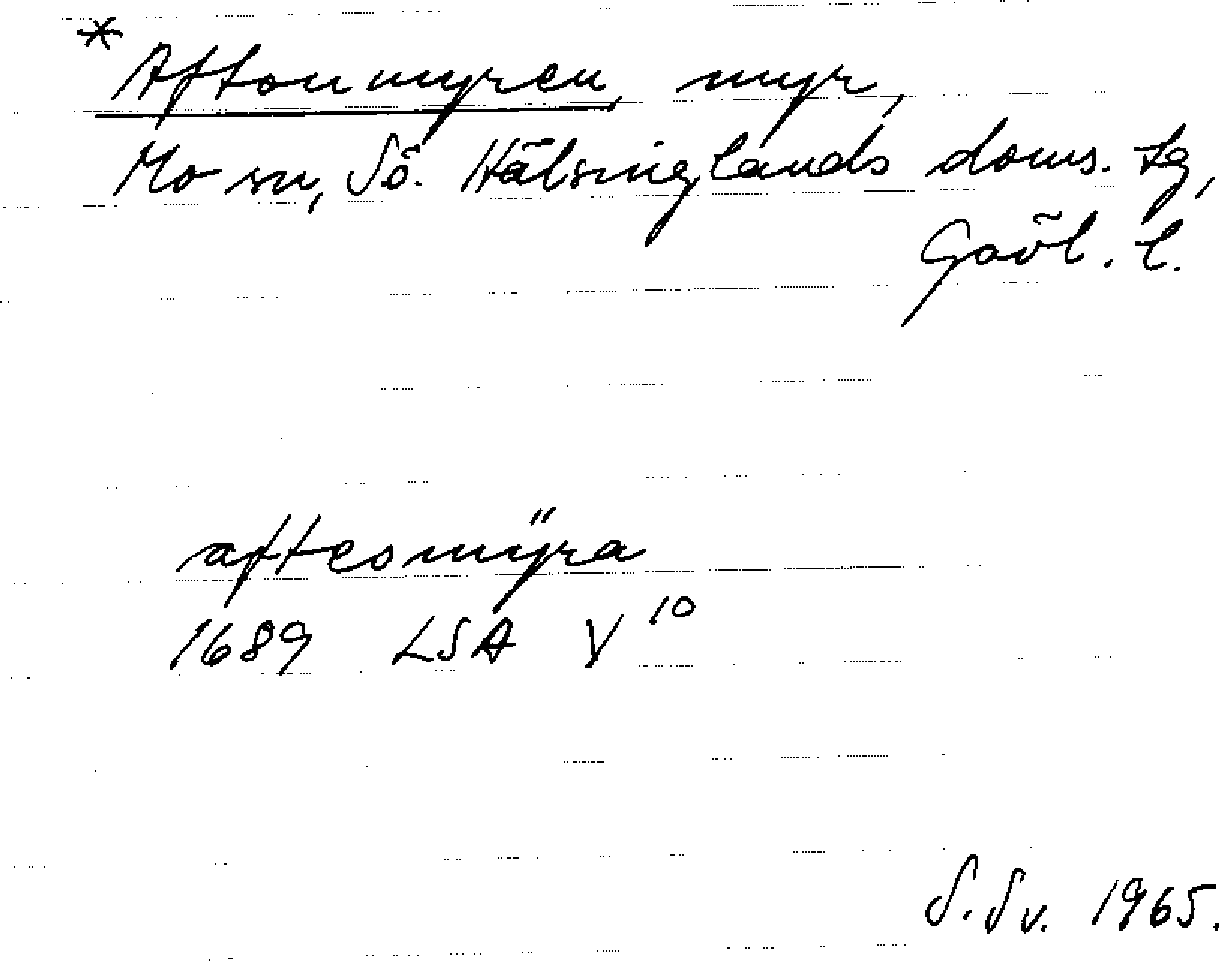 * Aftonmyren, myr,
Mo sn, Sö. Hälsinglands doms. tg,
Gävl. l.
afteomÿra
1689 LSA V 10
S. Sv. 1965.